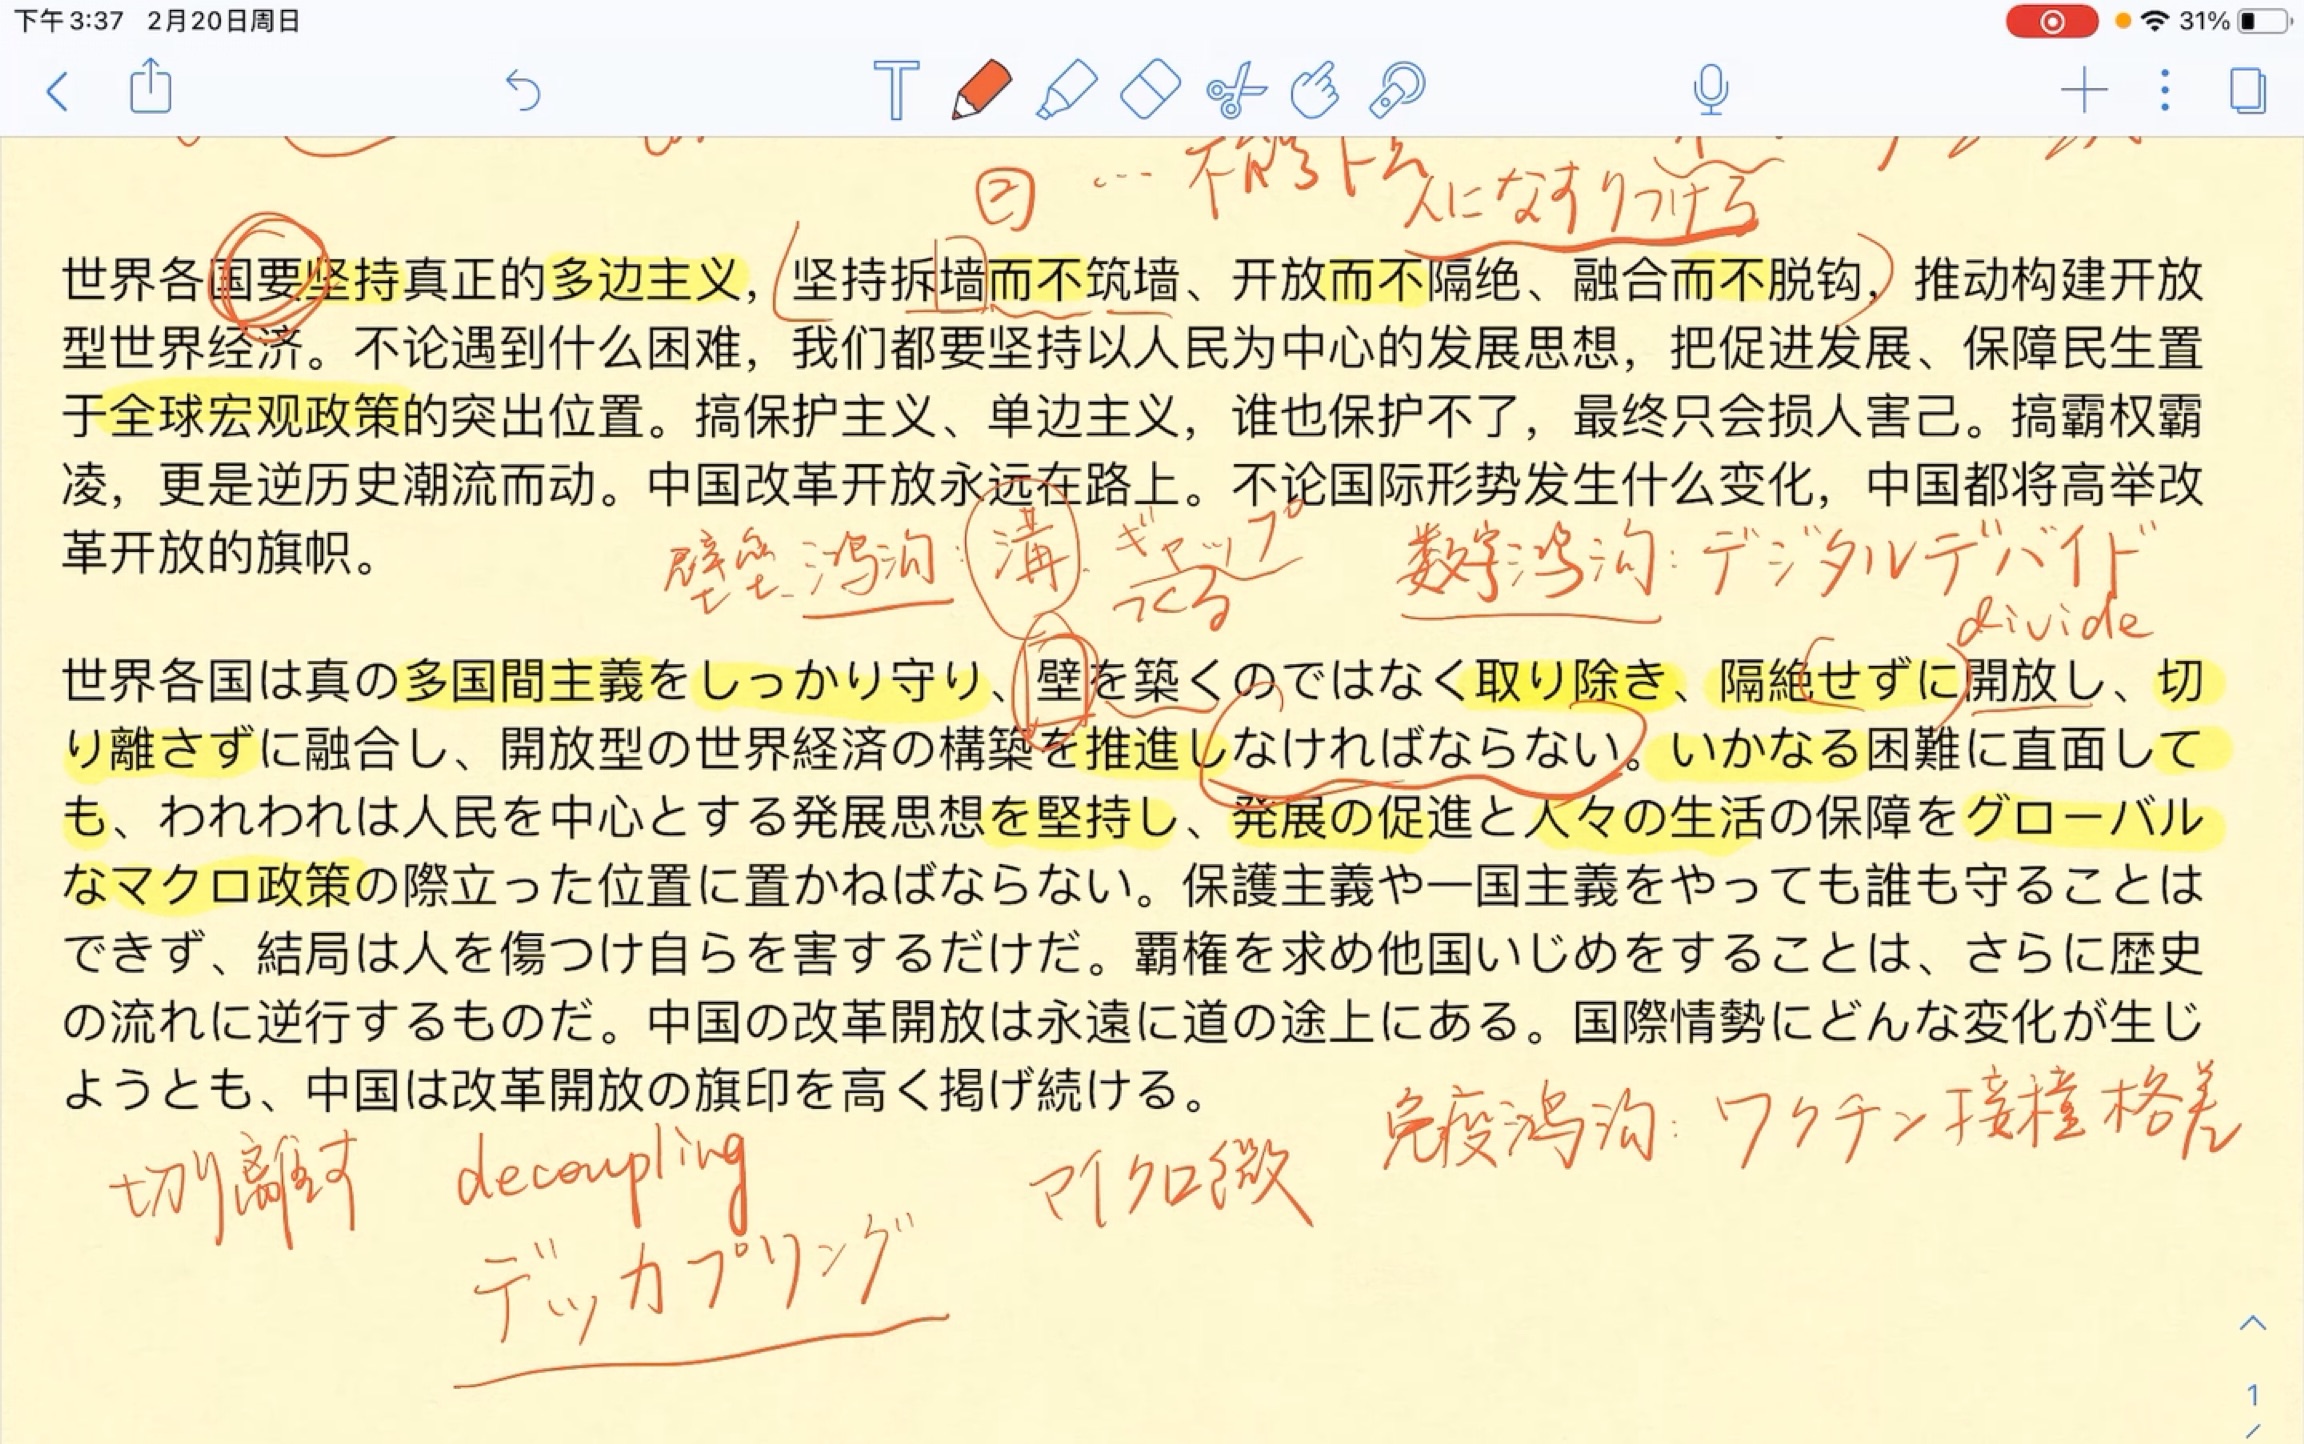 下午3:37 2月20日周日 31%
T
日 …
人になすりつける
世界各国要坚持真正的多边主义，坚持拆墙而不筑墙、开放而不隔绝、融合而不脱钩，推动构建开放
型世界经济。不论遇到什么困难，我们都要坚持以人民为中心的发展思想，把促进发展、保障民生置
于全球宏观政策的突出位置。搞保护主义、单边主义，谁也保护不了，最终只会损人害己。搞霸权霸
凌，更是逆历史潮流而动。中国改革开放永远在路上。不论国际形势发生什么变化，中国都将高举改
革开放的旗帜。
壁垒 鸿沟：溝 ギャップ 数字鸿沟：デジタルデバイド
つくる divide
世界各国は真の多国間主義をしっかり守り、壁を築くのではなく取り除き、隔絶せずに開放し、切
り離さずに融合し、開放型の世界経済の構築を推進しなければならない。いかなる困難に直面して
も、われわれは人民を中心とする発展思想を堅持し、発展の促進と人々の生活の保障をグローバル
なマクロ政策の際立った位置に置かねばならない。保護主義や一国主義をやっても誰も守ることは
できず、結局は人を傷つけ自らを害するだけだ。覇権を求め他国いじめをすることは、さらに歴史
の流れに逆行するものだ。中国の改革開放は永遠に道の途上にある。国際情勢にどんな変化が生じ
ようとも、中国は改革開放の旗印を高く掲げ続ける。
免疫鸿沟：ワクチン接種格差
切り離す decoupling マイクロ微
デッカプリング
1